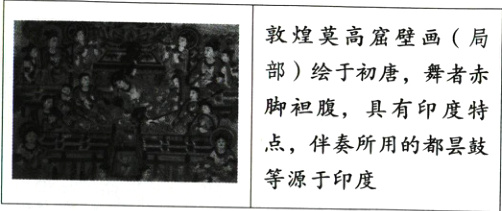 敦煌莫高窟壁画（局
部）绘于初唐，舞者赤
脚袒腹，具有印度特
点，伴奏所用的都昙鼓
等源于印度